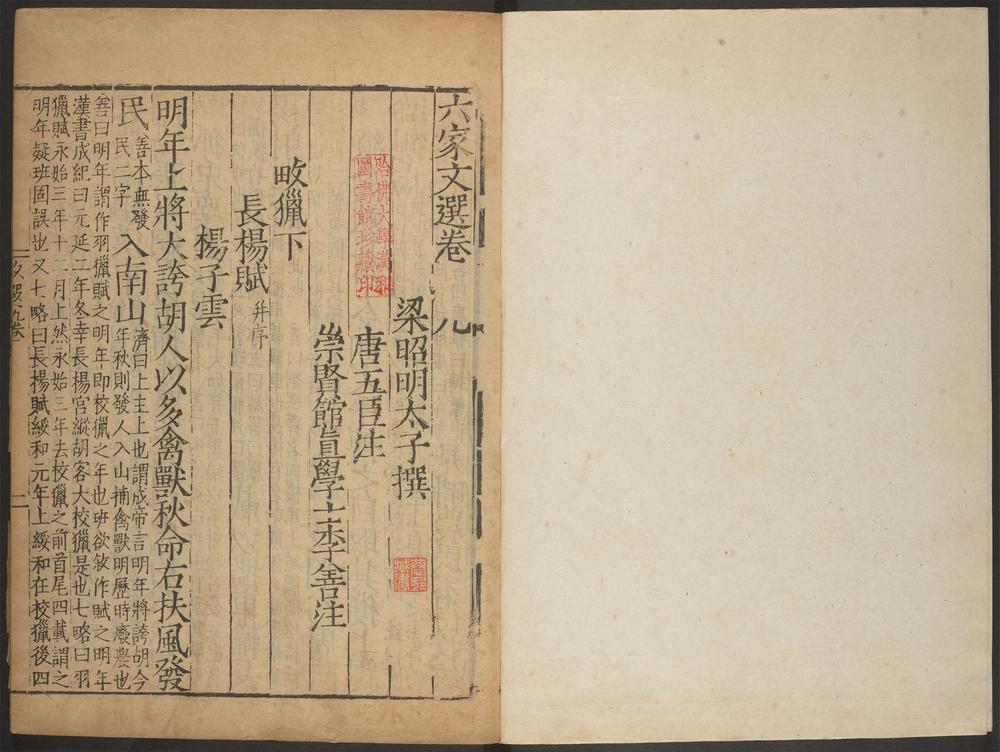 六家文選卷九
梁昭明太子撰
唐五臣注
崇賢館直學士李善注
畋獵下
長楊賦 并序
楊子雲
明年上將大誇胡人以多禽獸秋命右扶風發
民 善本無發民二字 入南山 濟曰上主上也謂成帝言明年將誇胡今年秋則發人入山捕禽獸明歷時廢農也
善曰明年謂作羽獵賦之明年即校獵之年也班欲敘作賦之明年
漢書成紀曰元延二年冬幸長楊宮縱胡客大校獵是也七略曰羽
獵賦永始三年十二月上然永始三年去校獵之前首尾四載謂之
明年疑班固誤也又七略曰長楊賦綏和元年上綏和在校獵後四
文選九卷
一
哈佛大學漢和圖書館珍藏印